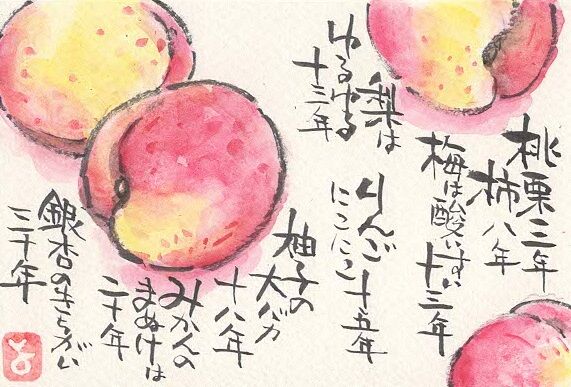 桃栗三年
柿八年
梅は酸いすい十三年
梨は
ゆるゆる
十三年
りんご
にこにこ十五年
柚子の
大バカ
十八年
みかんの
まぬけは
二十年
銀杏のきちがい
三十年